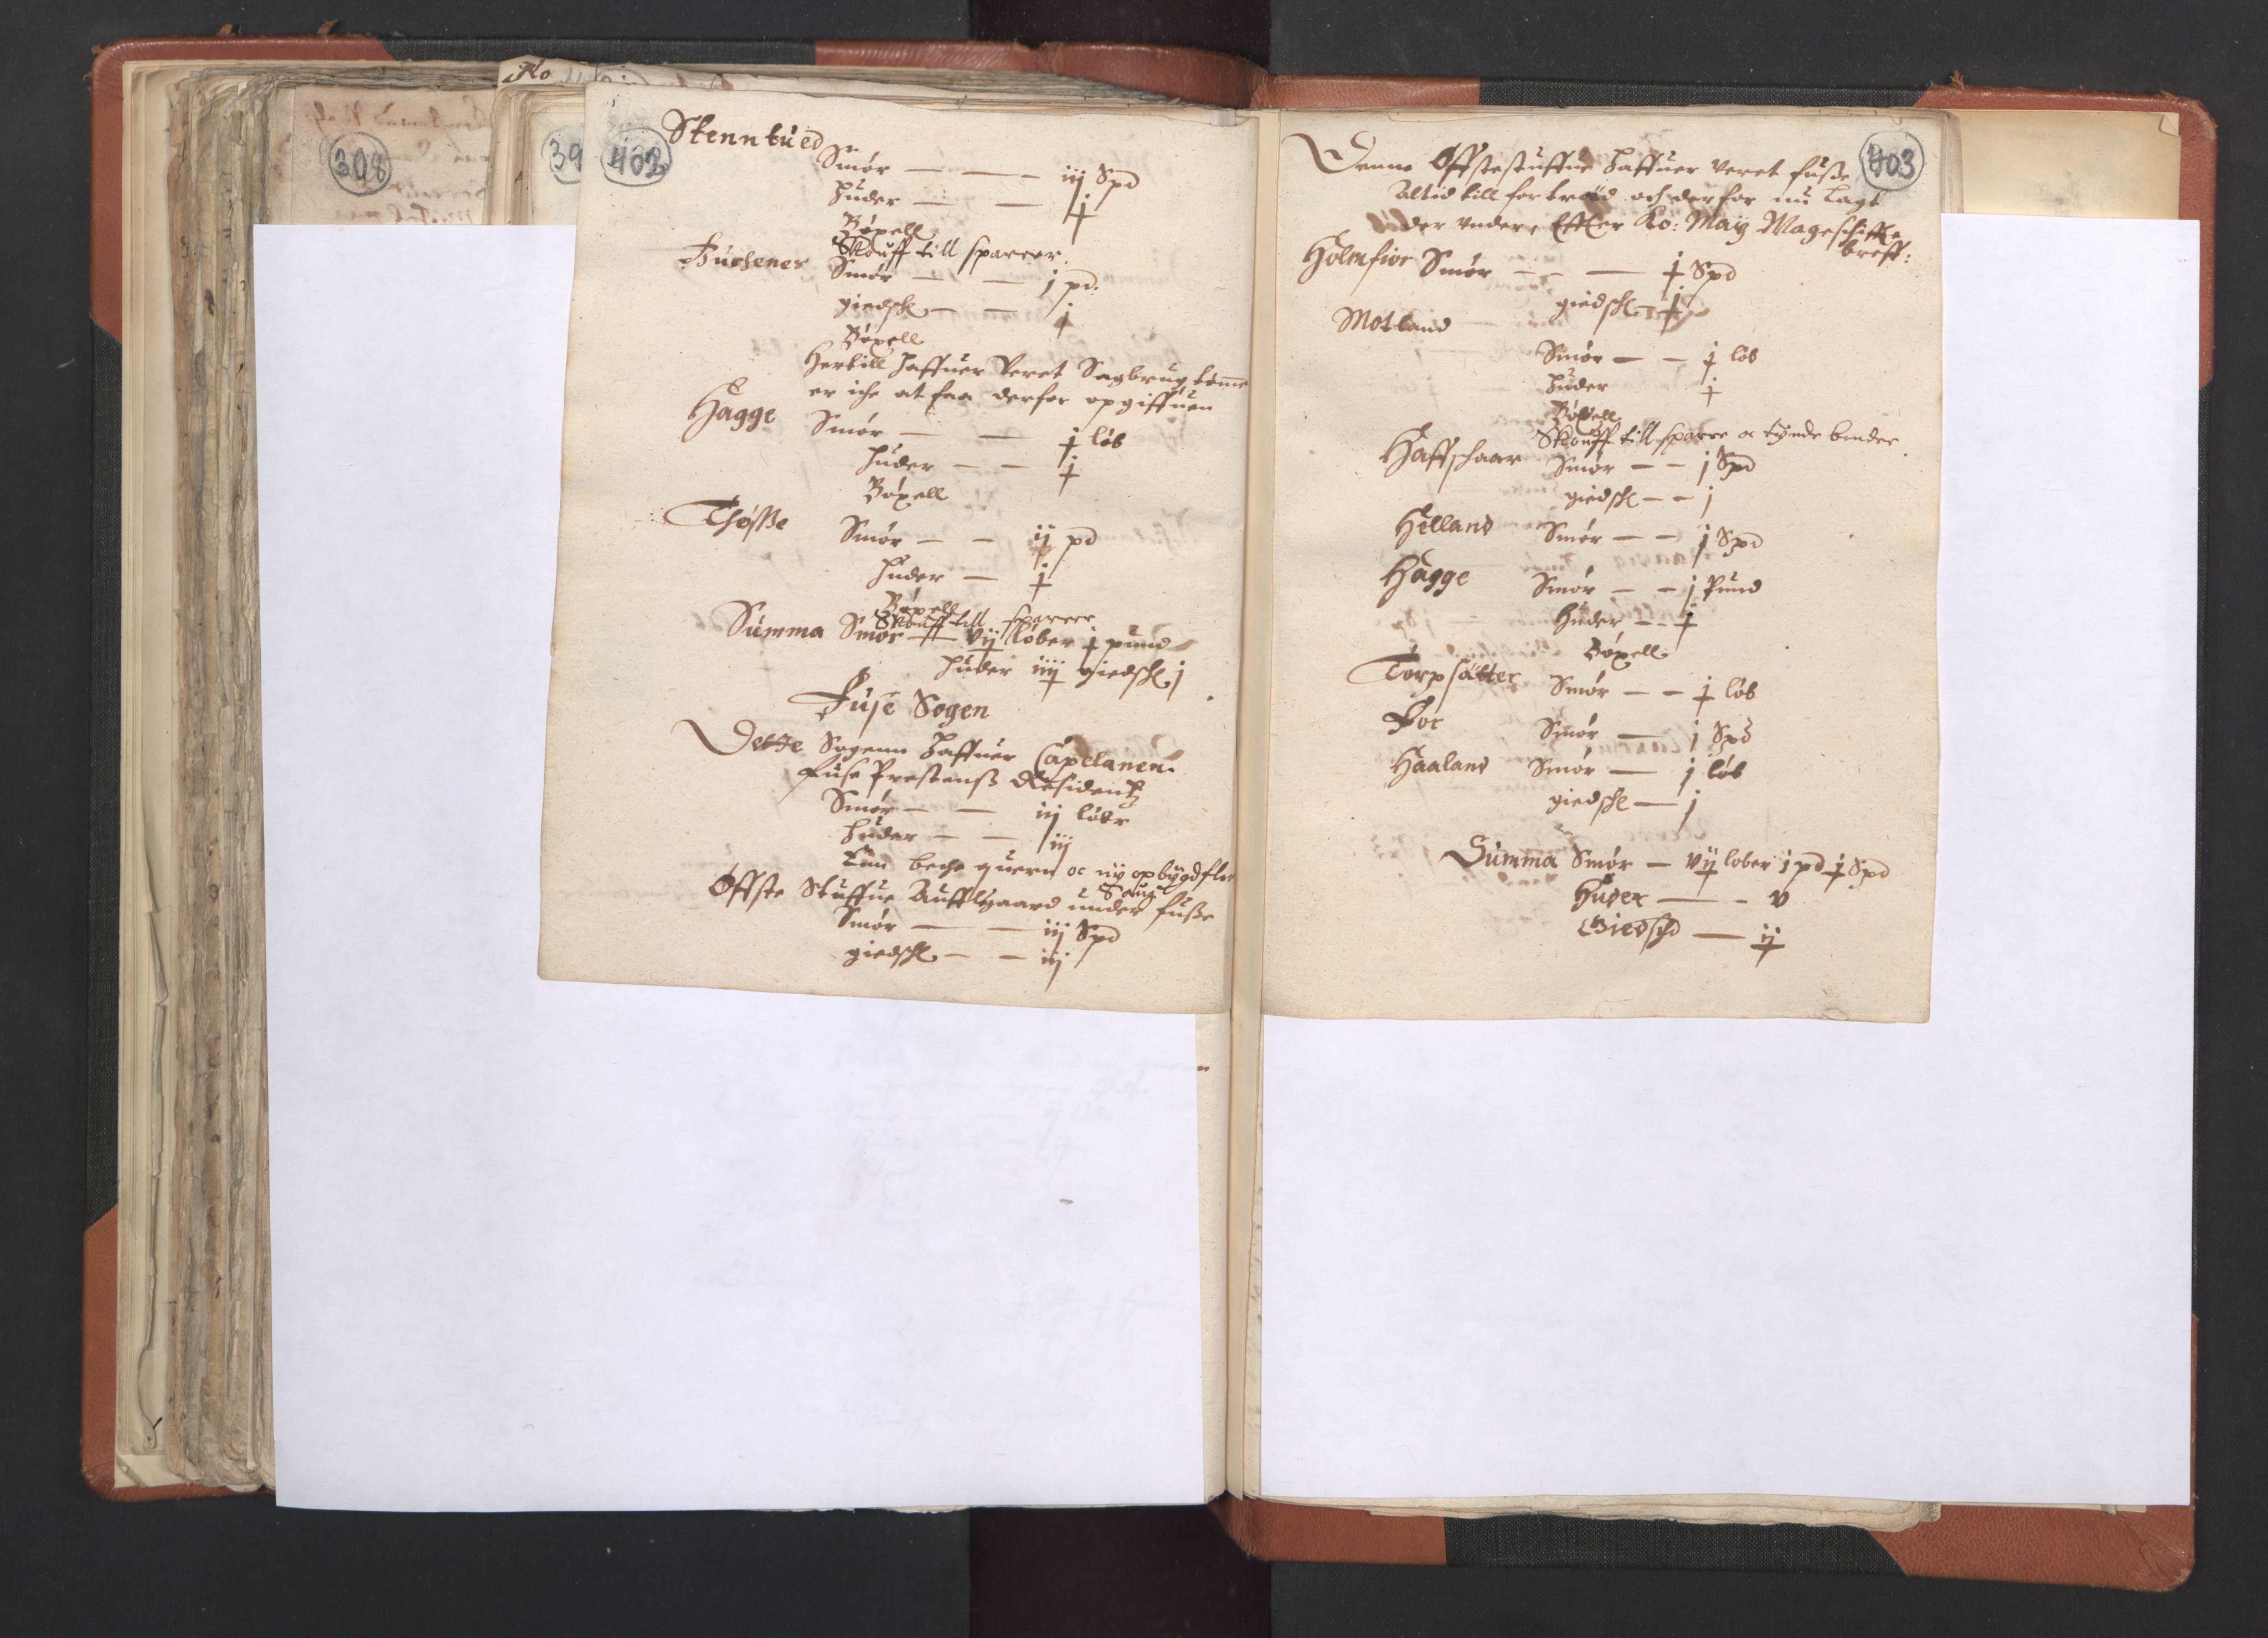 402
Stenntued
Smør — — iij Spd
Huder — — ɉ
Bøxell
Skouff till sparrer.
Buchenes Smør — — j pd.
giedsk — — ɉ
Bøxell
Hertill haffuer veret Sagbrug tømmer
er iche at faa derfor opgiffuen
Hagge Smør — — ɉ løb
huder — — ɉ
Bøxell
Thøsse Smør — — ij pd
huder — ɉ
Bøxell
Skouff till sparrer
Summa Smør — vij løber ɉ pund
huder iiij giedsk j
Fuse Sogen
Dette Sogenn haffuer Capelanen.
Fuse Prestens Residentz
Smør — — iij løbr
huder — — iij
Enn beche quern oc ny opbygd
Saug
Øffste Stuffue Auffllgaard under fusse
Smør — — iij Spd
giedsk — — iij
403
Denne Øffstestuffue haffuer veret fusse
Altid till for och derfor nu lagt
der under, Effter Ko: May Mageschiffte
breff:
Holmfior Smør — — ɉ Spd
giedsk — ɉ
Motland
Smør — — ɉ løb
huder ɉ
Bøxell
Skouff till sparre oc tynde bender
Haffschaar Smør — — j Spd
giedsk — — j
Helland Smør — — j Spd
Hagge Smør — — j Pund
huder — — ɉ
Bøxell
Torpsætter Smør — — ɉ løb
For Smør — j Spd
Haaland Smør — j løb
giedsk — j
Summa Smør — vij lober j pd ɉ Spd
Huder — - v
Giedschd — ij